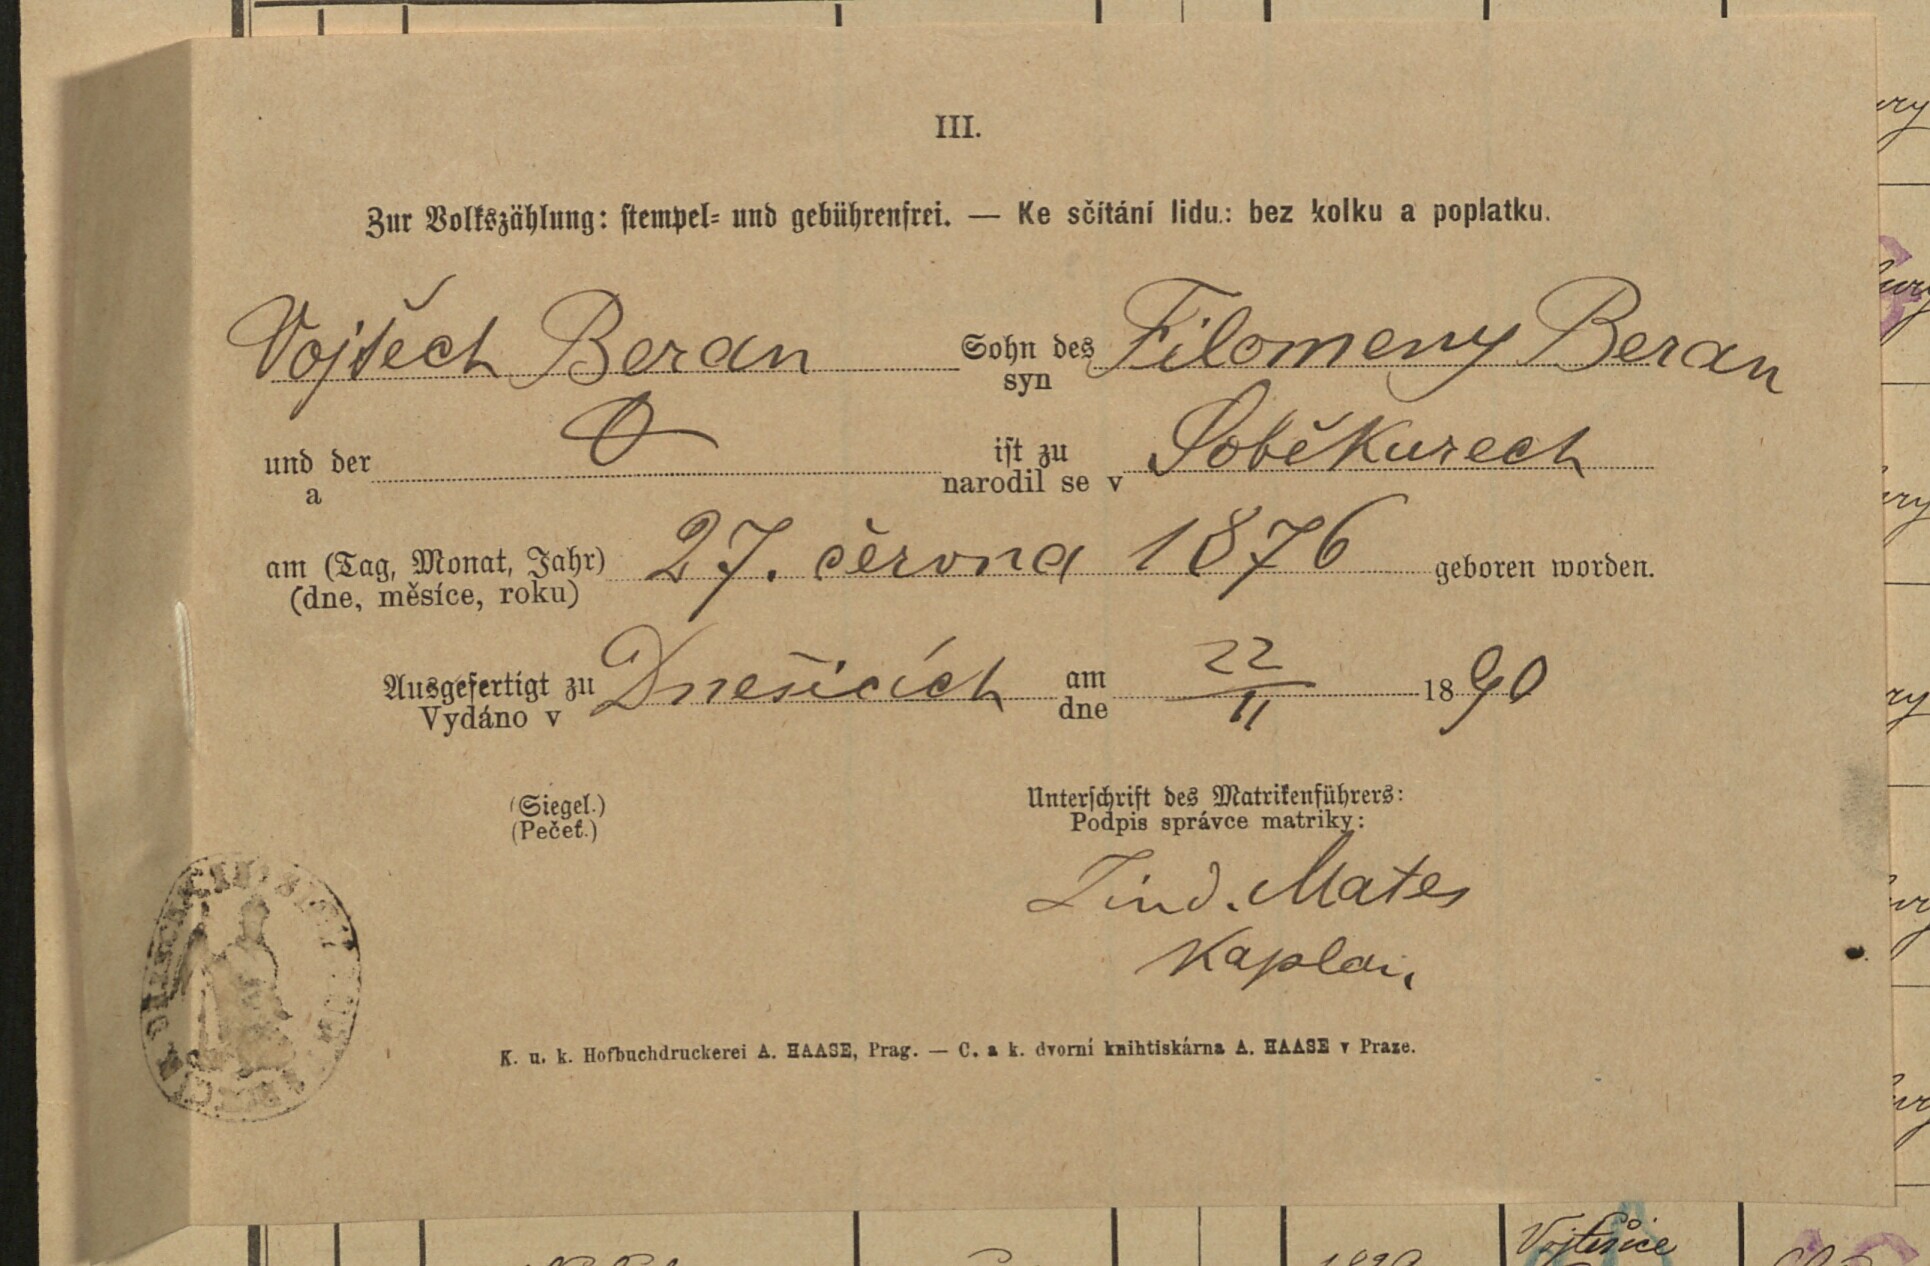 III.
Zur Volkszählung: stempel- und gebührenfrei. — Ke sčítání lidu.: bez kolku a poplatku.
Vojtěch Beran Sohn des Filomeny Beran
syn
und der ist zu Soběkurech
a narodil se v
am (Tag, Monat, Jahr) 27. června 1876 geboren worden.
(dne, měsíce, roku)
Ausgefertigt zu Dnešicích am 22/11 1890
Vydáno v dne
(Siegel.)
(Pečeť.)
Unterschrift des Matrikenführers:
Podpis správce matriky:
Mates
Kaplan
K. u. k. Hofbuchdruckerei A. HAASE, Prag. — C. a k. dvorní knihtiskárna A. HAASE v Praze.
Vojtěšice